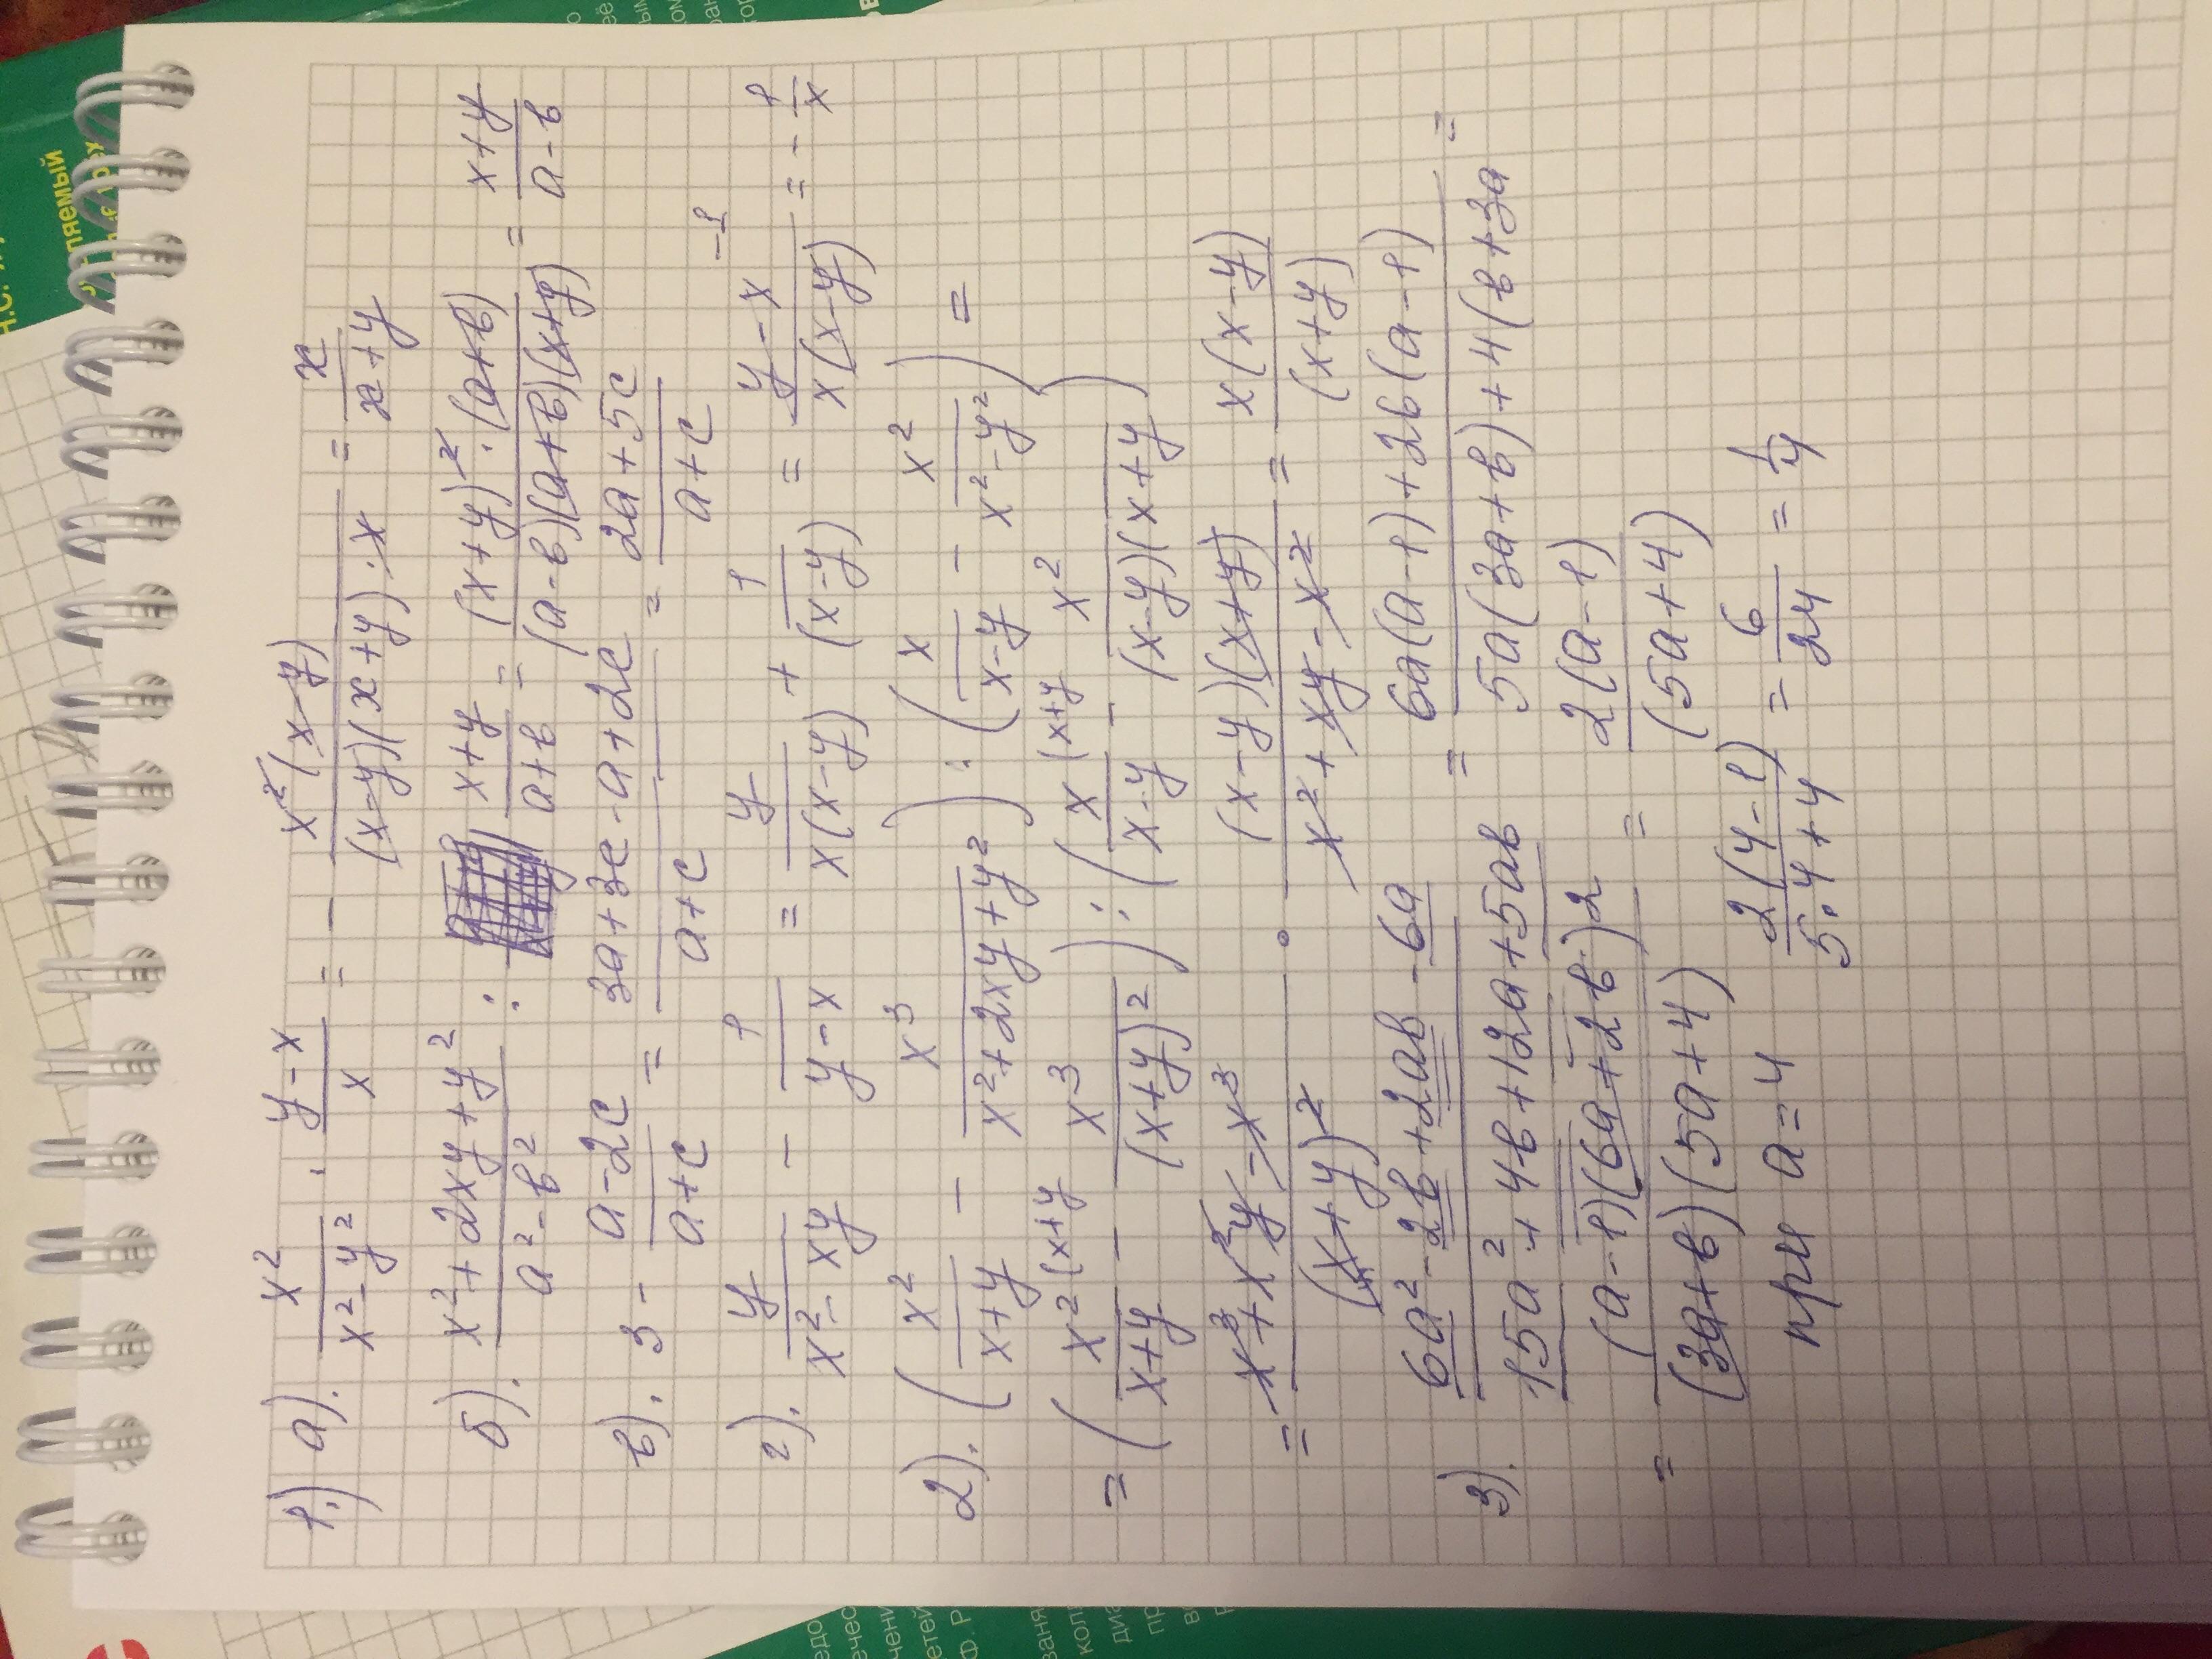 1.) а). x²/(x²-y²) · (y-x)/x = - x²(x-y)/((x-y)(x+y)·x) = x/(x+y)
б). (x²+2xy+y²)/(a²-b²) : (x+y)/(a+b) = (x+y)²·(a+b)/((a-b)(a+b)(x+y)) = (x+y)/(a-b)
в). 3 - (a-2c)/(a+c) = (3a+3c-a+2c)/(a+c) = (2a+5c)/(a+c)
г). y/(x²-xy) - 1/(y-x) = y/(x(x-y)) + 1/(x-y) = (y-x)/(x(x-y)) -1 = - 1/x
2). (x²/(x+y) - x³/(x²+2xy+y²)) : (x/(x-y) - x²/(x²-y²)) =
= (x²(x+y/(x+y) - x³/(x+y)²) : (x(x+y/(x-y) - x²/((x-y)(x+y))
= (x³+x²y-x³)/(x+y)² · (x-y)(x+y)/(x²+xy-x²) = x(x-y)/(x+y)
3). (6a²-2b+2ab-6a)/(15a²+4b+12a+5ab) = (6a(a-1)+2b(a-1))/(5a(3a+b)+4(b+3a =
= (a-1)(6a+2b)2/((3a+b)(5a+4) = 2(a-1)/(5a+4)
при a=4 2(4-1)/(5·4+4) = 6/24 = 1/4